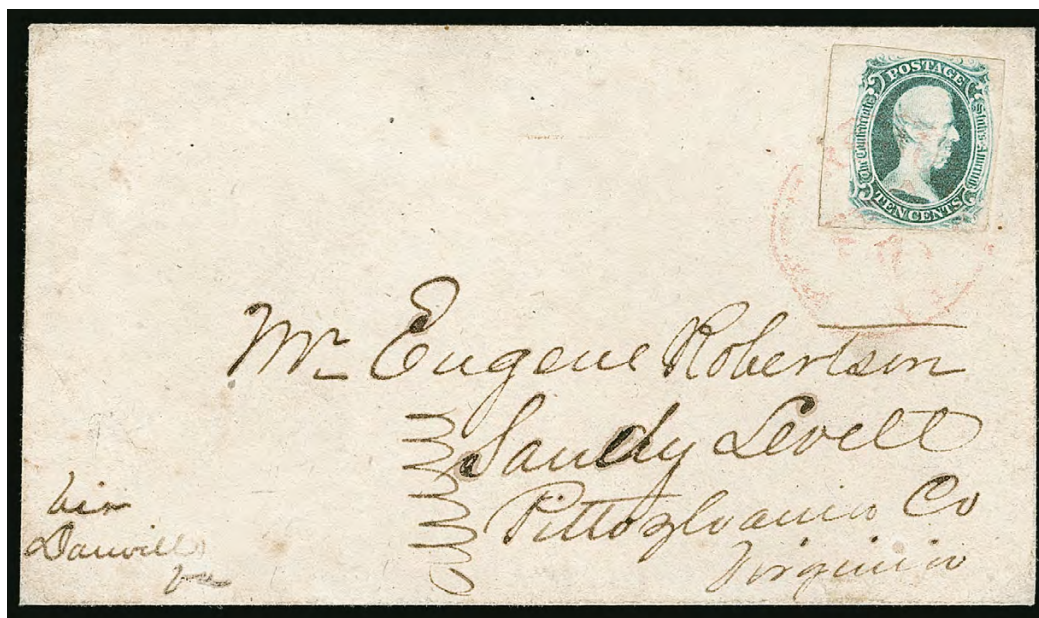 POSTAGE
The Confederate States America
TEN CENTS
Mr Eugene Robertson
Sandy Levell
Pittsylvania Co
Virginia
via
Danvill
Va